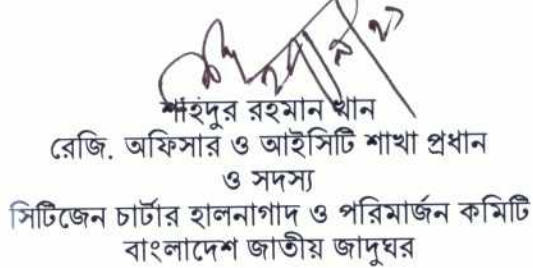 শহিদুর রহমান খান
রেজি. অফিসার ও আইসিটি শাখা প্রধান
ও সদস্য
সিটিজেন চার্টার হালনাগাদ ও পরিমার্জন কমিটি
বাংলাদেশ জাতীয় জাদুঘর